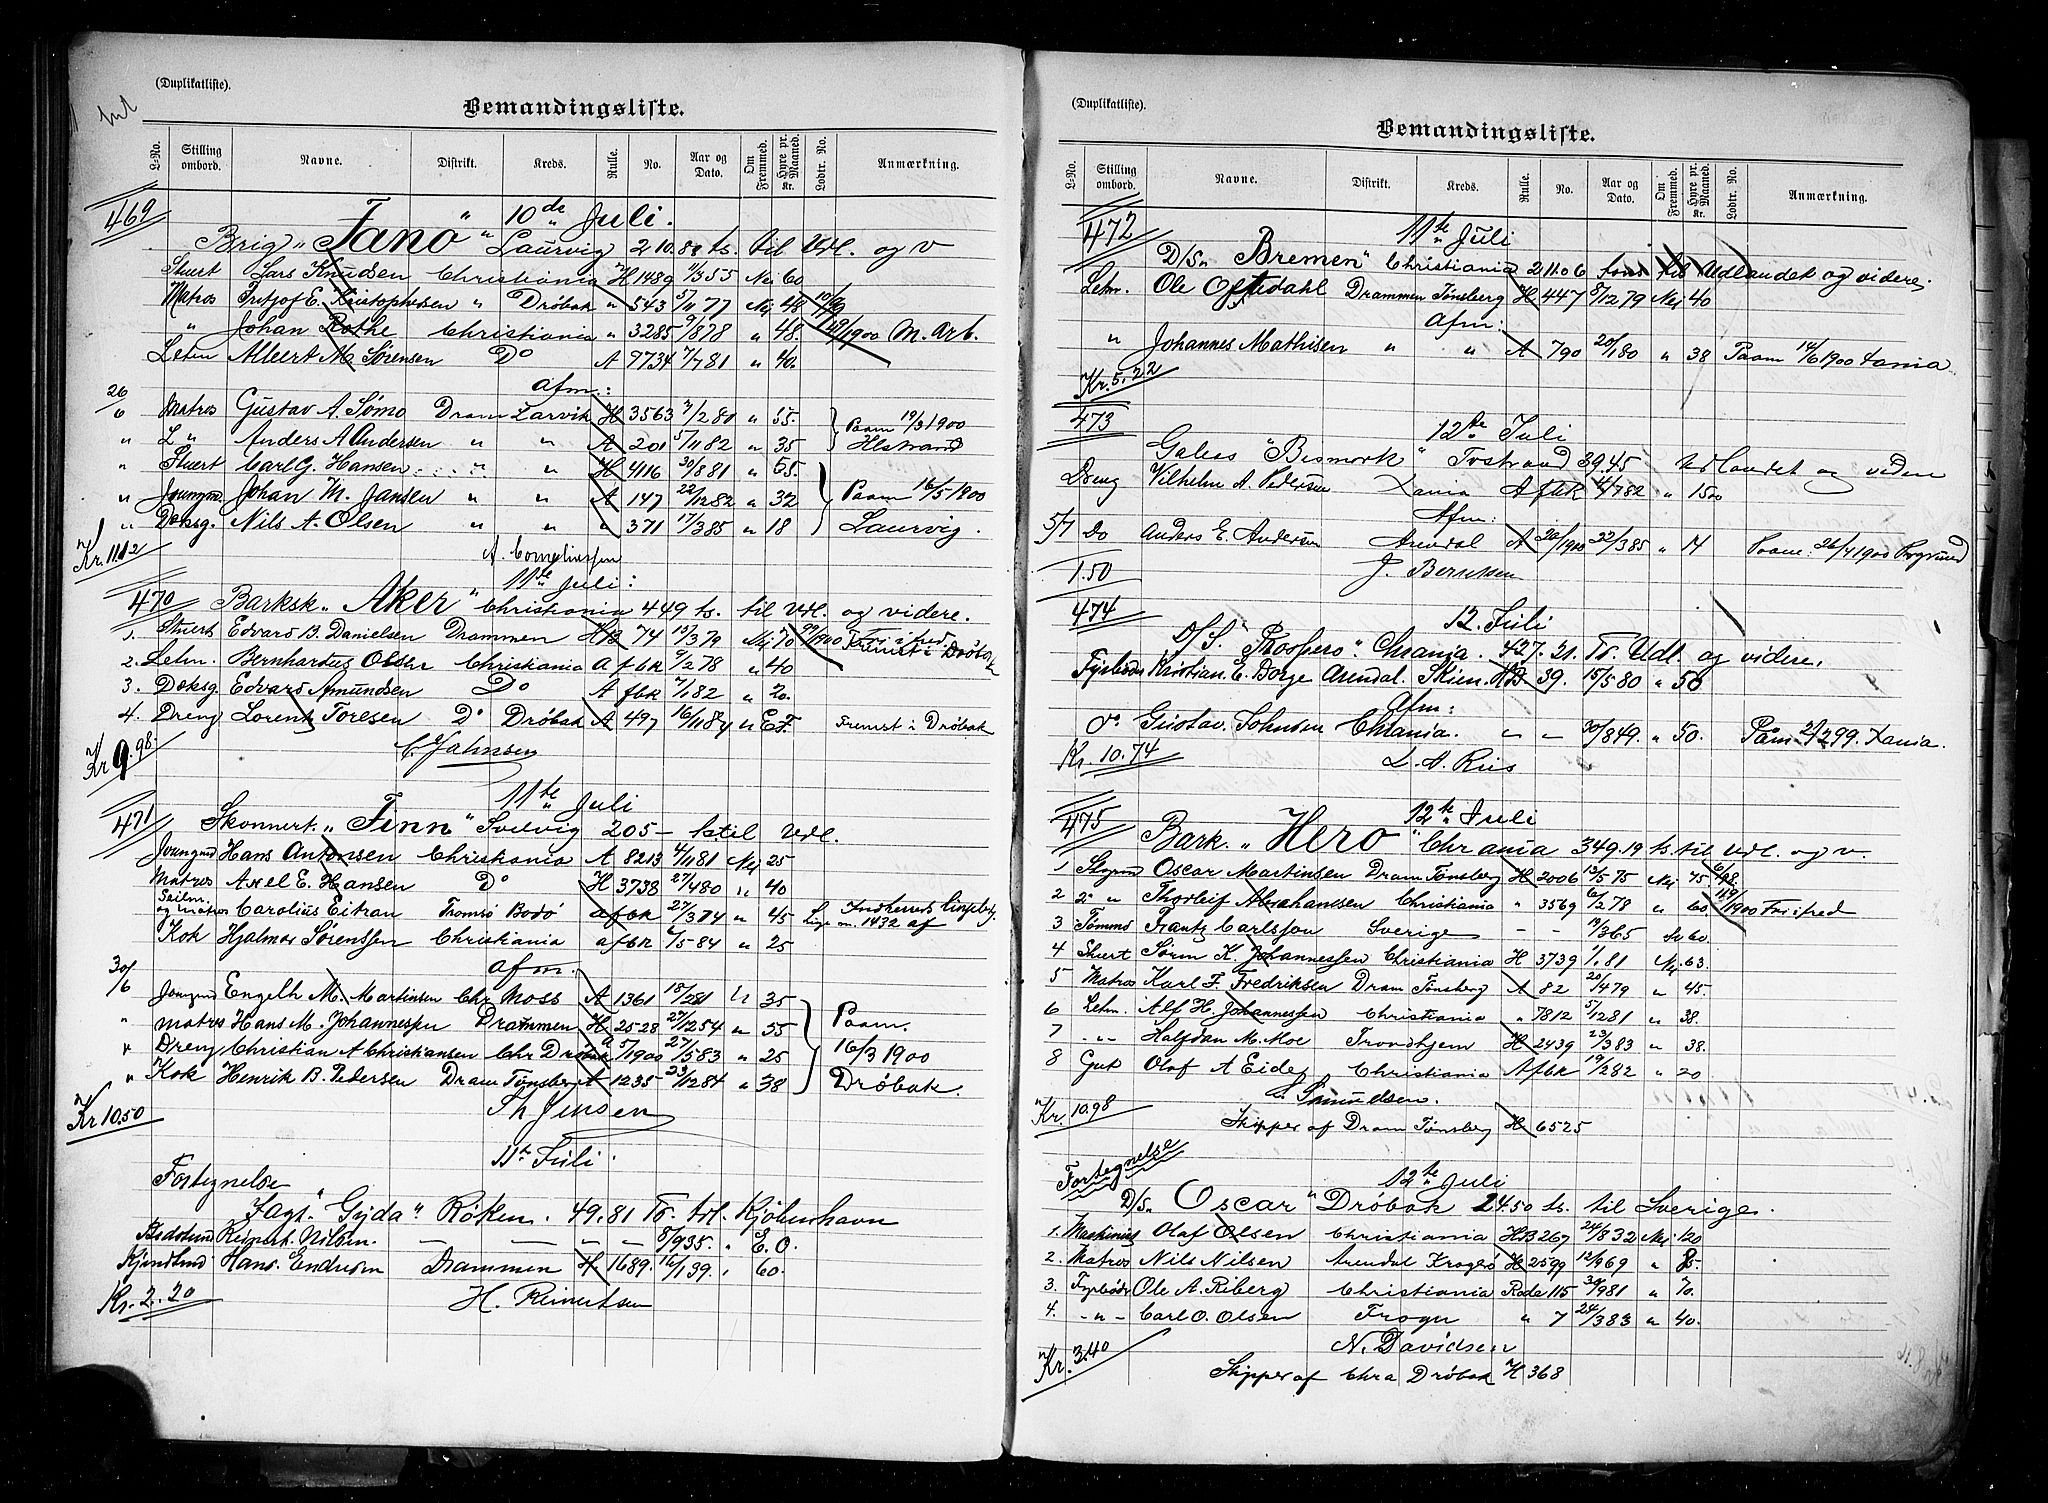 (Duplikatliste).
Bemandingsliste.
L-No. Stilling ombord. Navne. Distrikt. Kreds. Rulle. No. Aar og Dato. Om Fremmed. Hyre pr. Maaned Kr. Lodtr. No. Anmærkning.
469 10de Juli.
Brig „Fanö" Laurvig 210.8 ts. til Udl. og v
Stuert Lars Knudsen Christiania H 1489 1/3 55 Nei 60
Matros Fritjof E. Kristophersen " Dröbak " 543 5/11 77 Nei 48
" Johan Rothe Christiania " 3285 9/8 78 " 48. /1900 M. Arb.
Letm Albert M. Sørensen Do A 7734 7/7 81 " 40.
afm:
26/6 Matros Gustav A. Sømo Dram Larvik H 3563 7/2 80 " 55. Paam 19/3 1900
" L " Anders A Andersen " " A 201 5/11 82 " 35 Helstrand
" Stuert Carl G. Hansen " " H 416 30/8 81 " 55.
" Joungmd Johan M. Jansen " " A 147 22/12 82 " 32 Paam 16/5 1900
" Deksg. Nils A. Olsen " " " 371 17/3 85 " 18 Laurvig.
Kr. 11.12 A. Corneliussen
470 11te Juli:
Barksk. „Aker" Christiania 449 ts. til Udl. og videre.
1. Stuert Edvard B. Danielsen Drammen HB 74 13/3 79 Nei 70
2. Letm. Bernhardus Olsen Christiania A fbk 9/2 78 " 40
3. Deksg. Edvard Amundsen Do A fbk 7/1 82 " 20.
4. Dreng Lorentz Toresen Do Dröbak A 497 16/11 84 " E.F. Fremst i Dröbak
Kr 9.98. C. Jahnsen
471 11te Juli
Skonnert. „Finn" Svelvig 205 – ts til Udl.
Joungmd Hans Antonsen Christiania A 8213 4/11 81 Nei 25
Matros Axel E. Hansen Do H 3738 27/4 80 " 40
Seilm. og matros Carolius Eitran Tromsö Bodö afbk 27/3 74 " 45
Kok Hjalmar Sørenssen Christiania afbk 6/5 84 " 25
afm.
30/6 Joungmd Engelh M. Martinsen Chr Moss A 1361 18/2 81 " 35
" Matros Hans M. Johannessen Drammen H 2528 27/12 54 " 55 Paam.
" Dreng Christian A Christiansen Chr Dröbak A 5/1900 27/5 83 " 25 16/3 1900
" Kok Henrik B. Pedersen Dram Tønsberg A 1235 23/12 84 " 38 Dröbak.
Kr 10.50 Th Jensen
11te Juli.
Fortegnelse
Jagt. „Gyda" Röken. 49.81 To. til. Kjöbenhavn
Bedstmd Reinert Nilsen. – – – – 8/9 35. " E.O.
Kjendtmd Hans Endresen Drammen H 1689. 16/1 39. " 60.
Kr. 2.20 H. Reinertsen
(Duplikatliste).
Bemandingsliste.
L-No. Stilling ombord. Navne. Distrikt. Kreds. Rulle. No. Aar og Dato. Om Fremmed. Hyre pr. Maaned Kr. Lodtr. No. Anmærkning.
472 11te Juli
D/S „Bremen" Christiania 211.06 tons til Udlandet og videre.
Letm. Ole Oftedahl Drammen Tønsberg H 447 8/12 79 Nei 40
Afm:
" Johannes Mathisen " " A 790 20/1 80 " 38 Paam 14/6 1900 Xania
Kr. 5.22
473 12te Juli
Galeas „Bismark" Tvstrand 39.45 Udlandet og videre
Dreng Vilhelm A. Pedersen Xania A fbk /7 82 " 15
Afm:
5/7 Do Anders E. Andersen Arendal A 20/1900 22/3 85 " 14 Paam. 26/4 1900 Porsgrund
1.50 J. Berntsen
474 12. Juli
D/S. „Prospero". Chrania. 427.31. To. Udl. og videre.
Fyrbøder Kristian E. Borge Arendal. Skien. HB 39. 15/5 80 " 50
Afm:
do. Gustav Johnsen Chrania. " – 30/8 49. " 50. Paam 2/2 99. Xania.
Kr. 10.74 L. A. Riis
475 12te Juli
Bark. „Hero" Chrania 349.19 ts. til Udl. og v.
1 Oscar Martinsen Dram Tønsberg H 2006 13/5 75 Nei 75
2 2. " Thorleif Abrahamssen Christiania " 3569 6/2 78 " 60. /1900 Frisfred
3 Tømmd Frantz Carlsson Sverige – – 19/3 65 Sv 60.
4 Stuert Sørm K. Johannessen Christiania H 3739 1/1 81 Nei 63.
5 Matros Karl F. Fredriksen Dram Tønsberg A 82 20/4 79 " 45.
6 Letm. Alf H. Johannessen Christiania " 7812 5/12 81 " 38.
7 " Halfdan M. Moe Trondhjem H 2439 23/3 83 " 38.
8 Gut Olof A Eide Christiania A fbk 19/2 82 " 20
Kr. 10.98 L. Samuelsen.
Skipper af Dram Tønsberg H 6525
Fortegnelse 12te Juli
D/S „Oscar" Dröbak 24.50 ts. til Sverige.
1. Maskinist Olaf Olsen Christiania HB 267 24/8 32 Nei 120
2. Matros Nils Nilsen Arendal Kragerö H 2599 12/9 69 " 85.
3. Fyrbøder Ole A. Riberg Christiania Rode 115 30/9 81 " 70.
4. – " – Carl O. Olsen Frogn " 7 24/3 83 " 40.
Kr. 3.40 N. Davidsen
Skipper af Chra Dröbak H 368